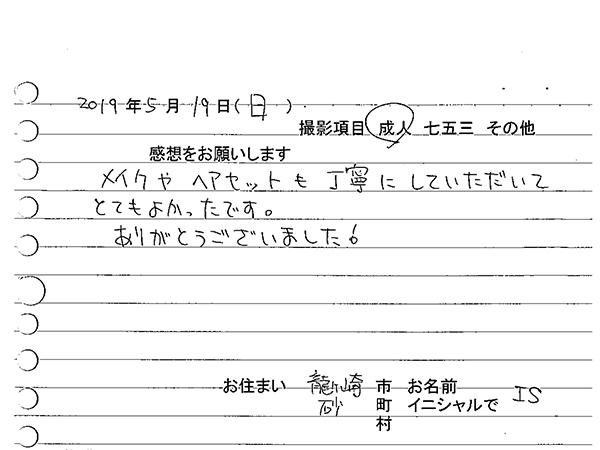 2019年5月19日(日)
撮影項目 成人 七五三 その他
感想をお願いします
メイクや ヘアセットも 丁寧に していただいて
とてもよかったです。
ありがとうございました!
お住まい 龍ヶ崎 市 お名前
砂 町 イニシャルで IS
村